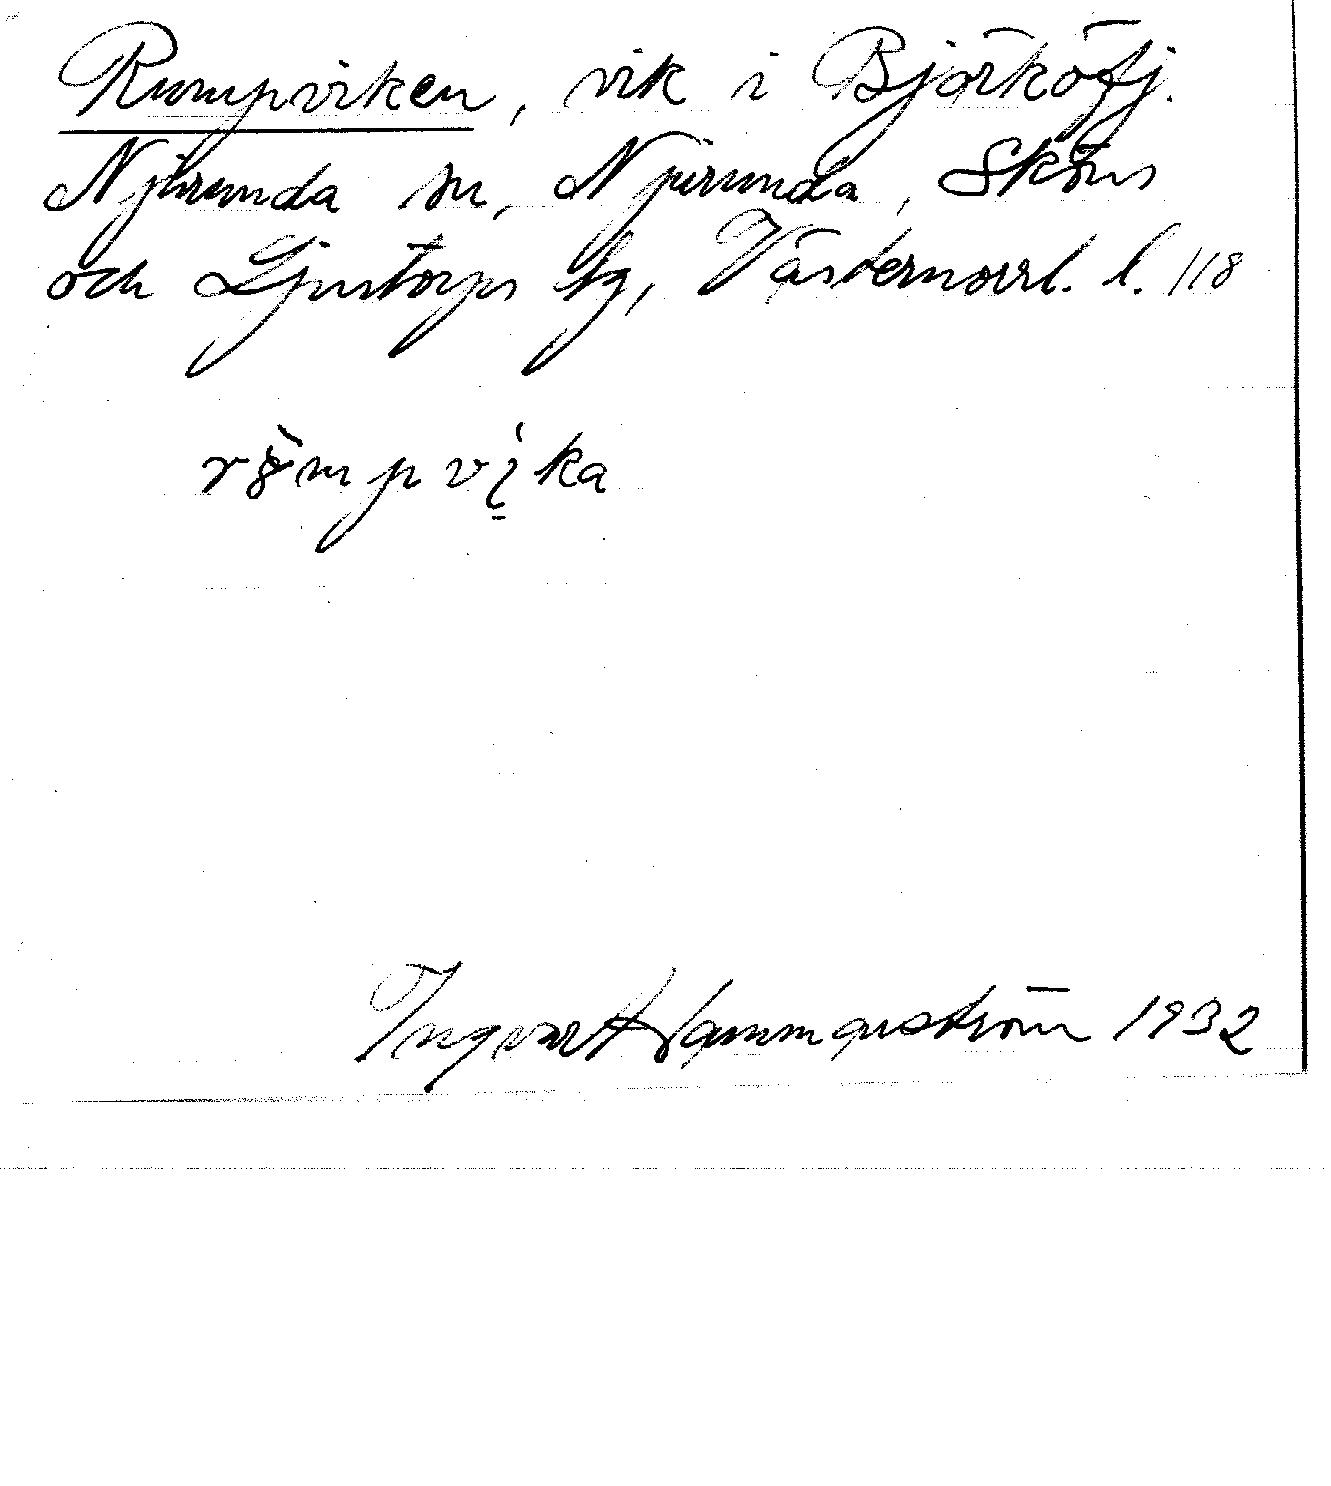 Rumpviken, vik i Björköfj.
Njurunda sn, Njurunda, Sköns
och Ljustorps tg, Västernorrl. l. 118
r8̀mpvi̱̇ka
Ingvar Hammarström 1932